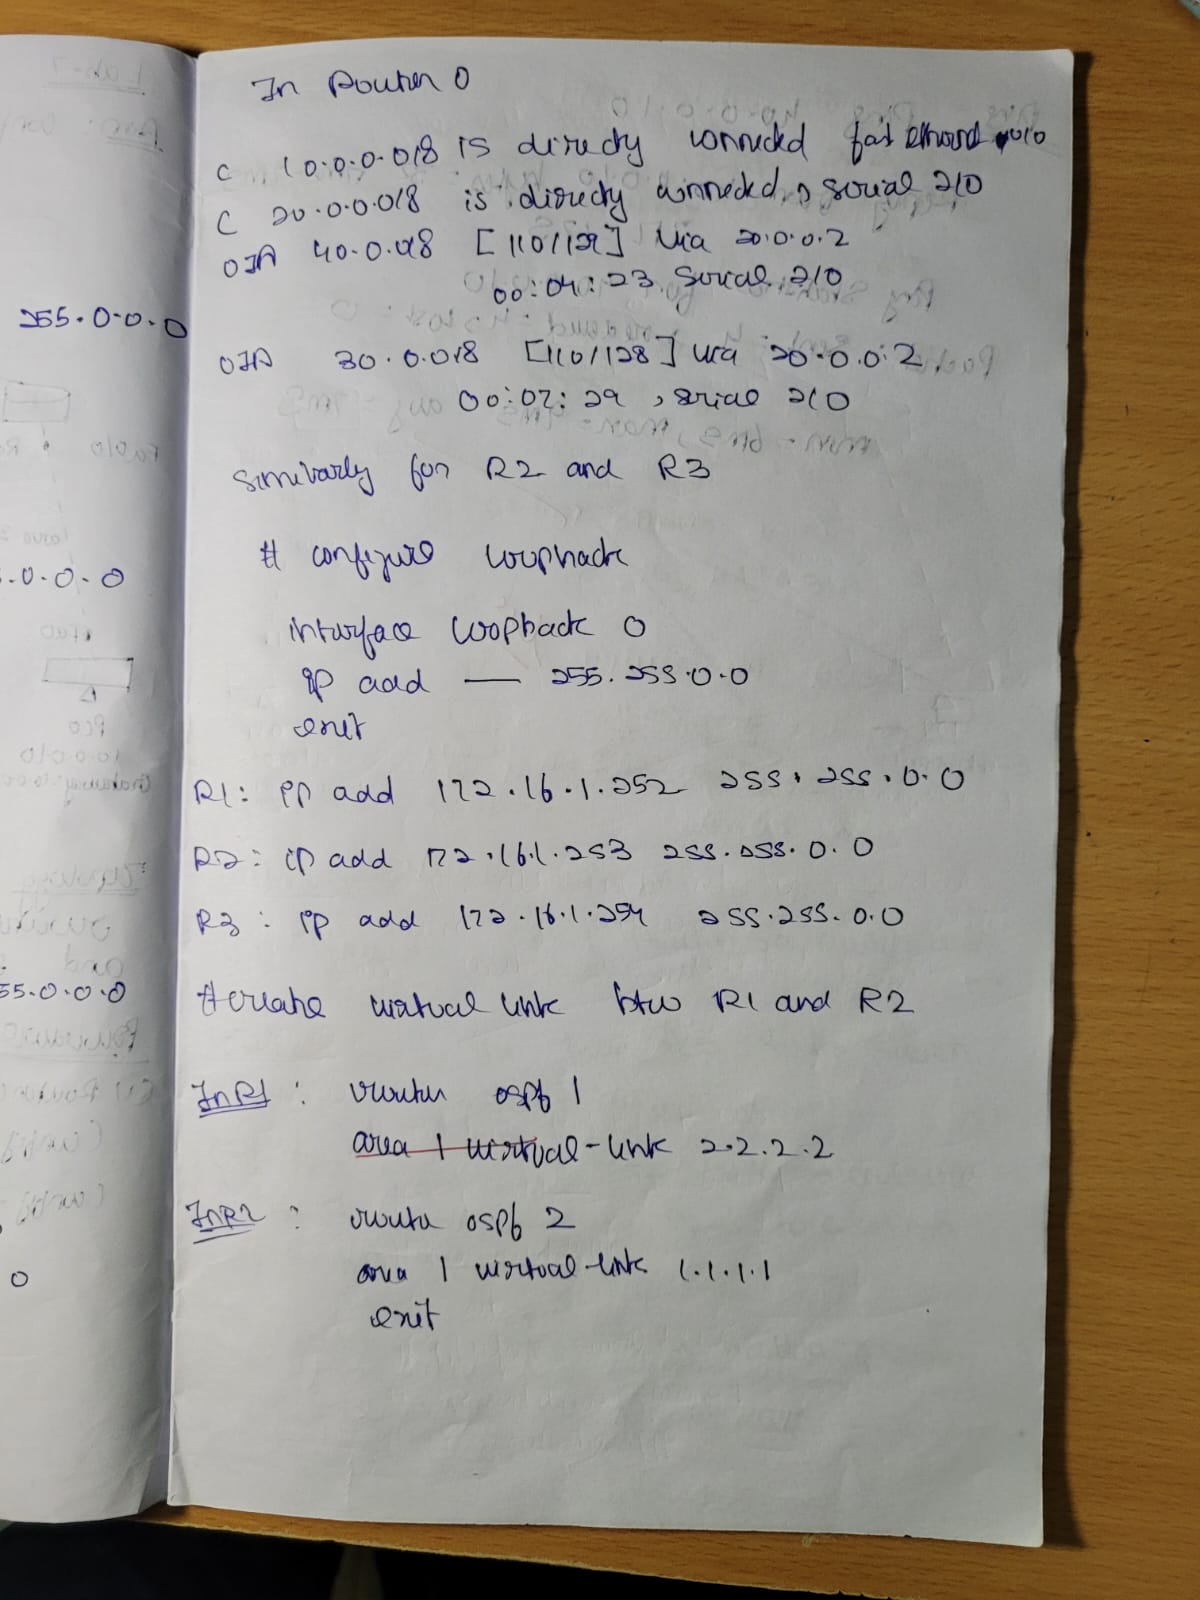 In Router 0
C 10.0.0.0/8 is directly connected fast ethernet 0/0
C 20.0.0.0/8 is directly connected, serial 2/0
O IA 40.0.0/8 [110/129] via 20.0.0.2
00:04:23 Serial 2/0
O IA 30.0.0/8 [110/128] via 20.0.0.2
00:07:29, serial 2/0
Similarly for R2 and R3
# configure loopback
interface loopback 0
ip add — 255.255.0.0
exit
R1: ip add 172.16.1.252 255.255.0.0
R2: ip add 172.16.1.253 255.255.0.0
R3: ip add 172.16.1.254 255.255.0.0
#create virtual link btw R1 and R2
In R1: router ospf 1
area 1 virtual-link 2.2.2.2
In R2: router ospf 2
area 1 virtual-link 1.1.1.1
exit
255.0.0.0
.0.0.0
55.0.0.0
0